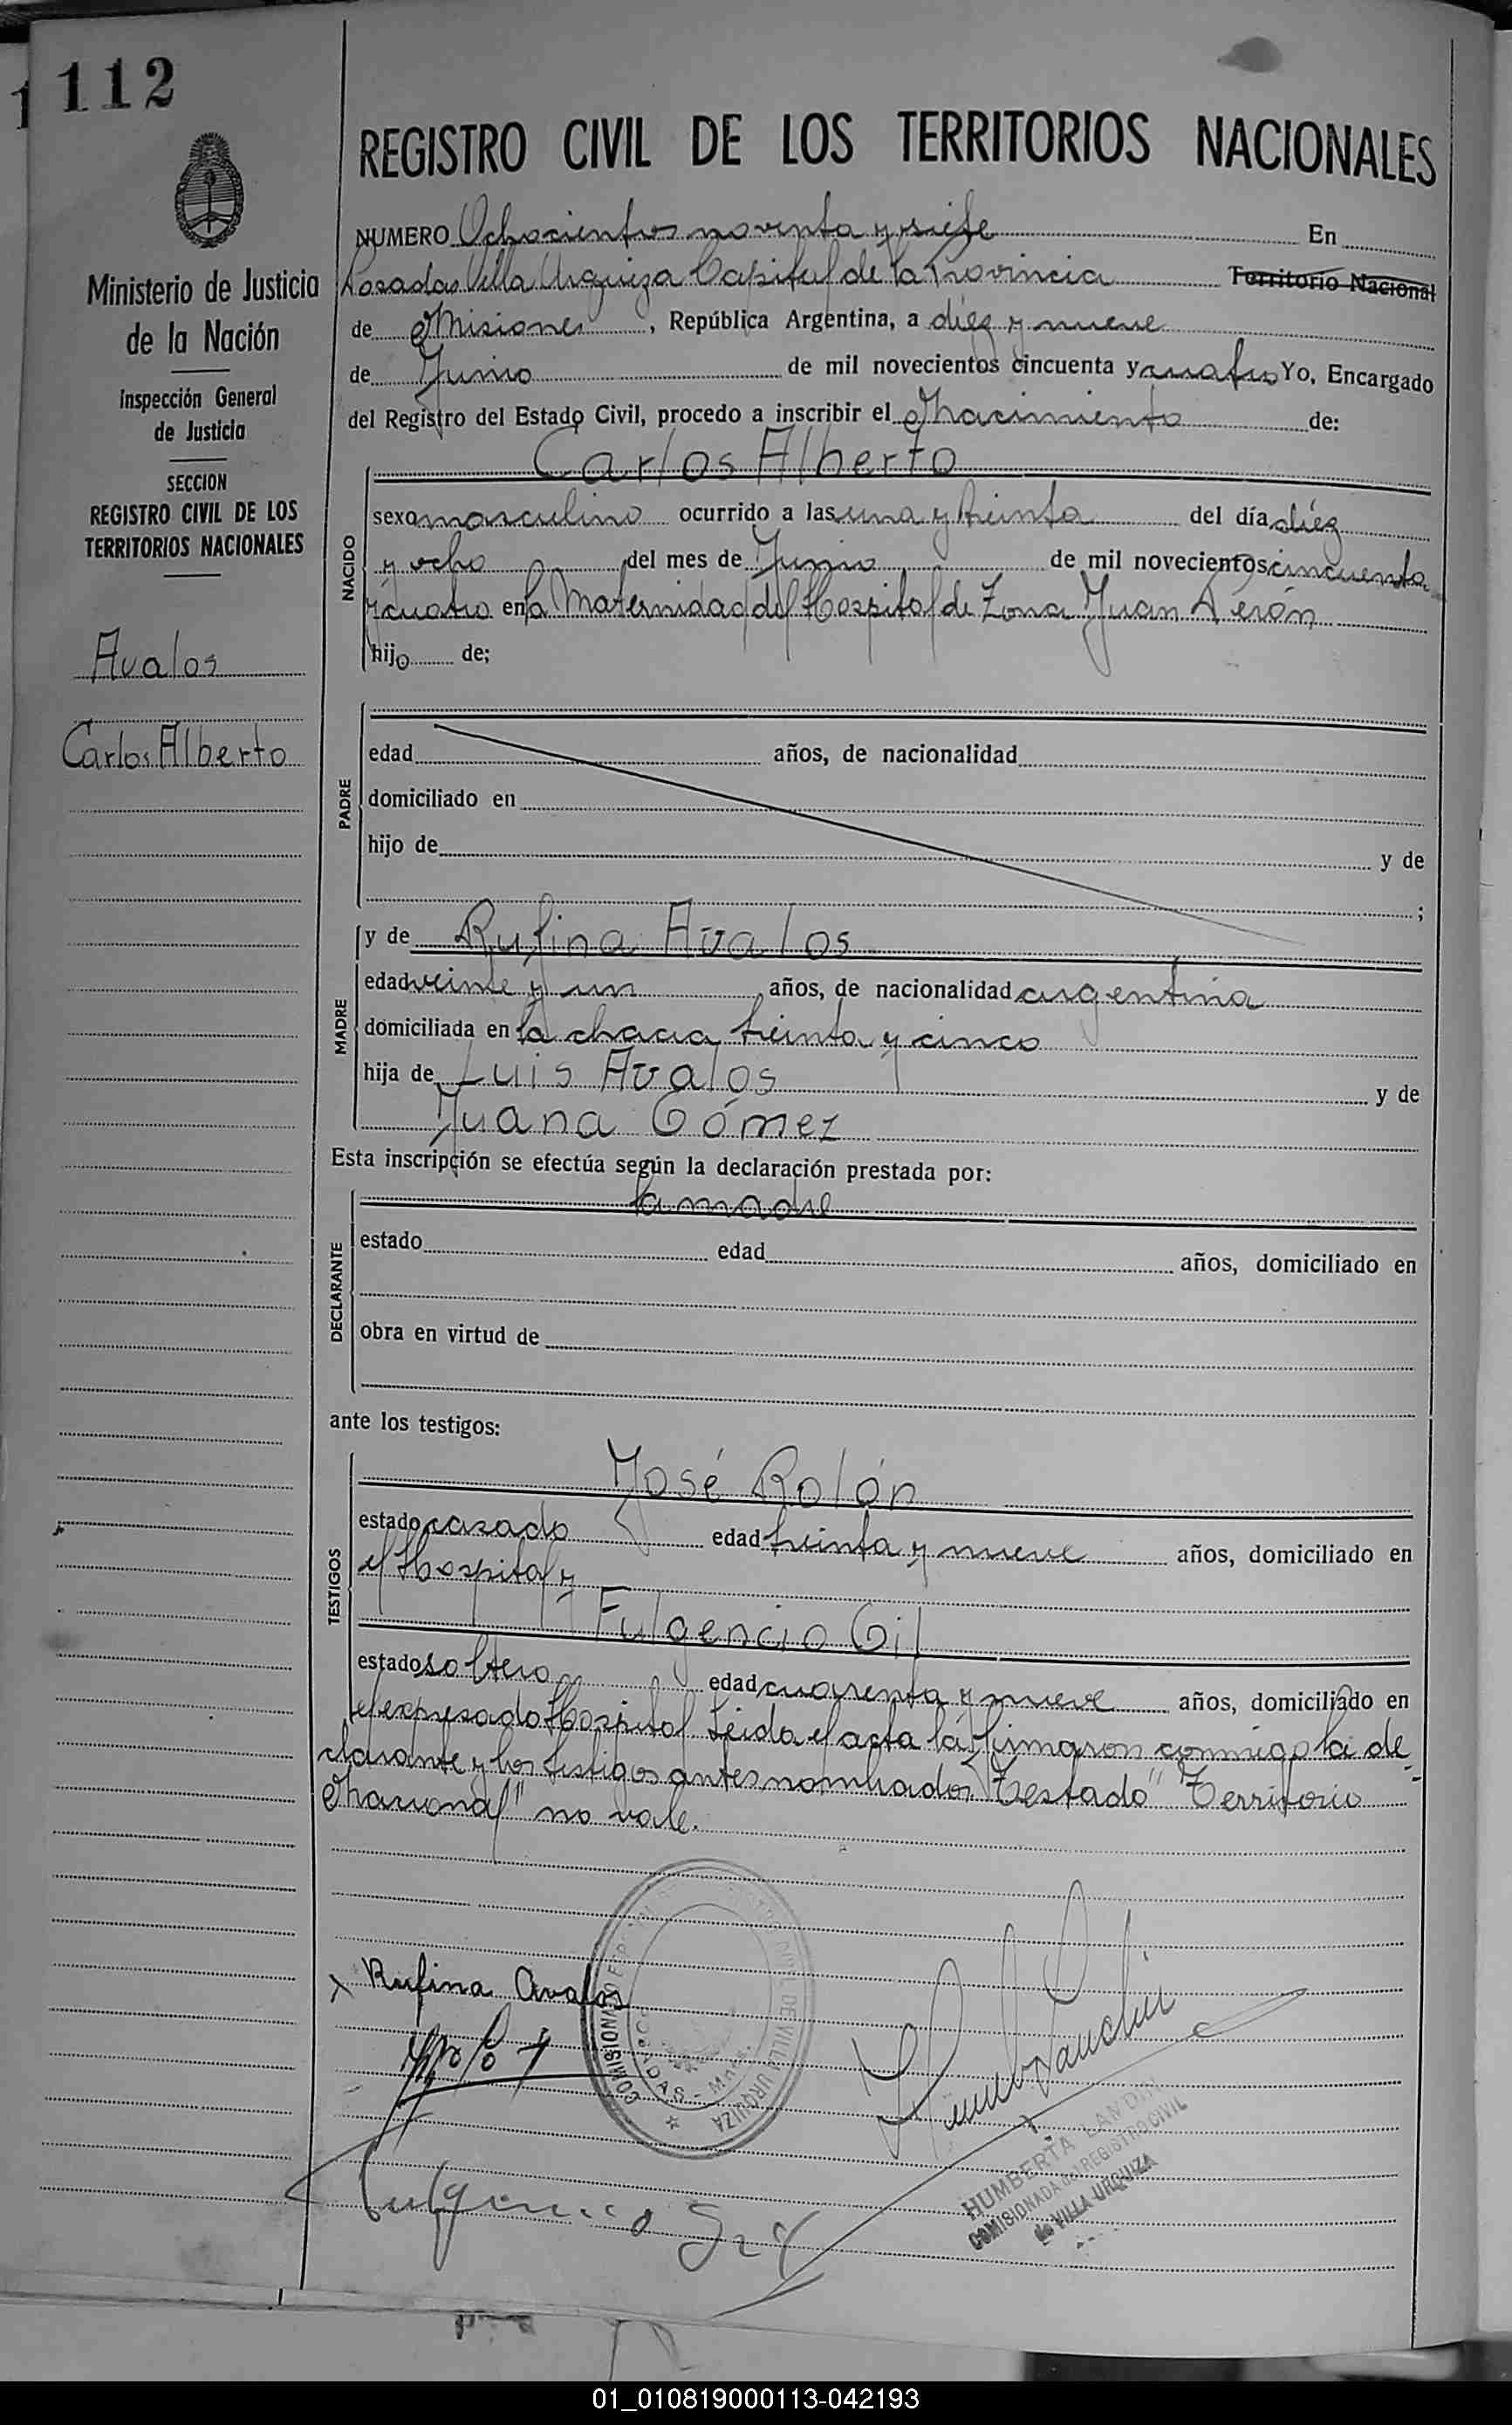 112
Ministerio de Justicia
de la Nación
Inspección General
de Justicia
SECCION
REGISTRO CIVIL DE LOS
TERRITORIOS NACIONALES
Avalos
Carlos Alberto
REGISTRO CIVIL DE LOS TERRITORIOS NACIONALES
NUMERO Ochocientos noventa y siete En
Posadas Villa Urquiza Capital de la Provincia Territorio Nacional
de Misiones, República Argentina, a diéz y nueve
de Junio de mil novecientos cincuenta y cuatro Yo, Encargado
del Registro del Estado Civil, procedo a inscribir el Nacimiento de:
Carlos Alberto
NACIDO
sexo masculino ocurrido a las una y treinta del día diéz
y ocho del mes de Junio de mil novecientos cincuenta
y cuatro en la Maternidad del Hospital de Zona Juan Perón
hijo de;
PADRE
edad años, de nacionalidad
domiciliado en
hijo de y de
;
MADRE
y de Rufina Avalos
edad veinte y un años, de nacionalidad argentina
domiciliada en la chacra treinta y cinco
hija de Luis Avalos y de
Juana Gómez
Esta inscripción se efectúa según la declaración prestada por:
la madre
DECLARANTE
estado edad años, domiciliado en
obra en virtud de
ante los testigos:
TESTIGOS
José Rolón
estado casado edad treinta y nueve años, domiciliado en
el Hospital y
Fulgencio Gil
estado soltero edad cuarenta y nueve años, domiciliado en
el expresado Hospital Leida el acta la firmaron conmigo la de-
clarante y los testigos antes nombrados Testado "Territorio
Nacional" no vale.
Rufina Avalos
COMISIONADO
CIVIL DE VILLA URQUIZA
POSADAS - Mnes.
Fulgencio Gil
HUMBERTA LANDIN
COMISIONADA del REGISTRO CIVIL
de VILLA URQUIZA
01_010819000113-042193